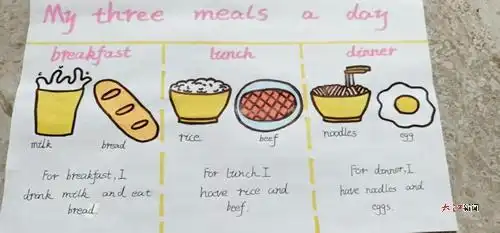 My three meals a day
breakfast
lunch
dinner
milk
bread
rice
beef
noodles
egg
For breakfast, I
drink milk and eat
bread.
For lunch I
have rice and
beef.
For dinner, I
have noodles and
eggs.